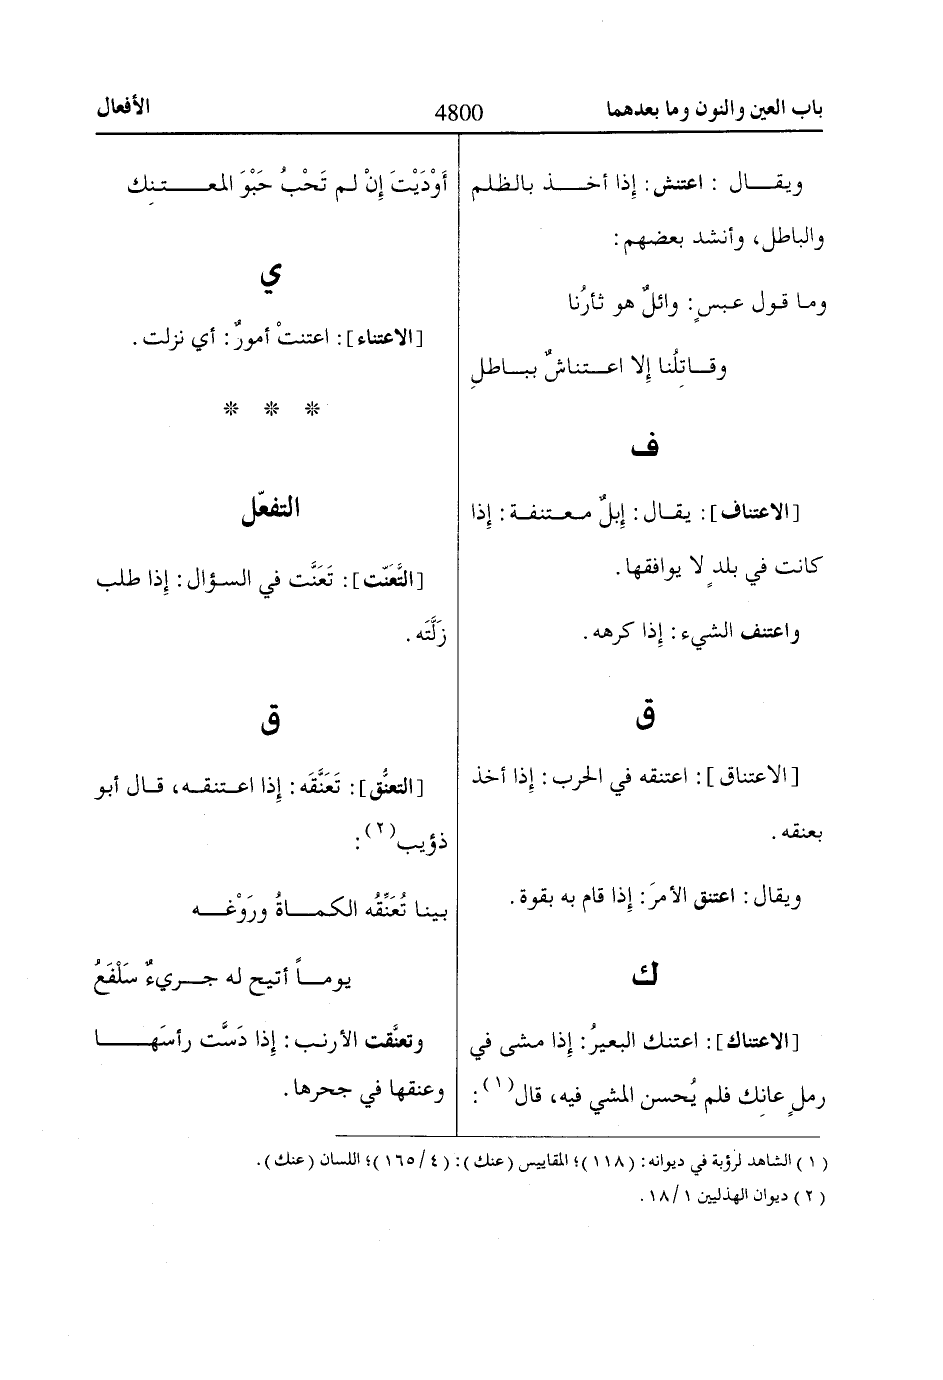 باب العين والنون وما بعدهما
4800
الأفعال
ويقال : اعتنش: إذا أخذ بالظلم
والباطل، وأنشد بعضهم:
وما قول عبسٍ: وائلٌ هو ثأرُنا
وقاتلُنا إلا اعتناشٌ بباطلِ
ف
[الاعتناف]: يقال: إبلٌ معتنفة: إذا
كانت في بلدٍ لا يوافقها.
واعتنف الشيء: إذا كرهه.
ق
[الاعتناق]: اعتنقه في الحرب: إذا أخذ
بعنقه.
ويقال: اعتنق الأمرَ: إذا قام به بقوة.
ك
[الاعتناك]: اعتنك البعيرُ: إذا مشى في
رملٍ عانِك فلم يُحسن المشي فيه، قال(١):
أَوْدَيْتَ إِنْ لم تَحْبُ حَبْوَ المعتنِك
ي
[الاعتناء]: اعتنتْ أمورٌ: أي نزلت.
* * *
التفعّل
[التَّعَنّت]: تَعَنَّت في السؤال: إذا طلب
زَلَّتَه.
ق
[التعنُّق]: تَعَنَّقَه: إذا اعتنقه، قال أبو
ذؤيب(٢):
بينا تُعَنِّقُه الكماةُ ورَوْغه
يوماً أتيح له جريءٌ سَلْفَعُ
وتعنَّقت الأرنب: إذا دَسَّت رأسَها
وعنقها في جحرها.
(١) الشاهد لرؤبة في ديوانه: (١١٨)؛ المقاييس (عنك): (٤/١٦٥)؛ اللسان (عنك).
(٢) ديوان الهذليين ١/١٨.